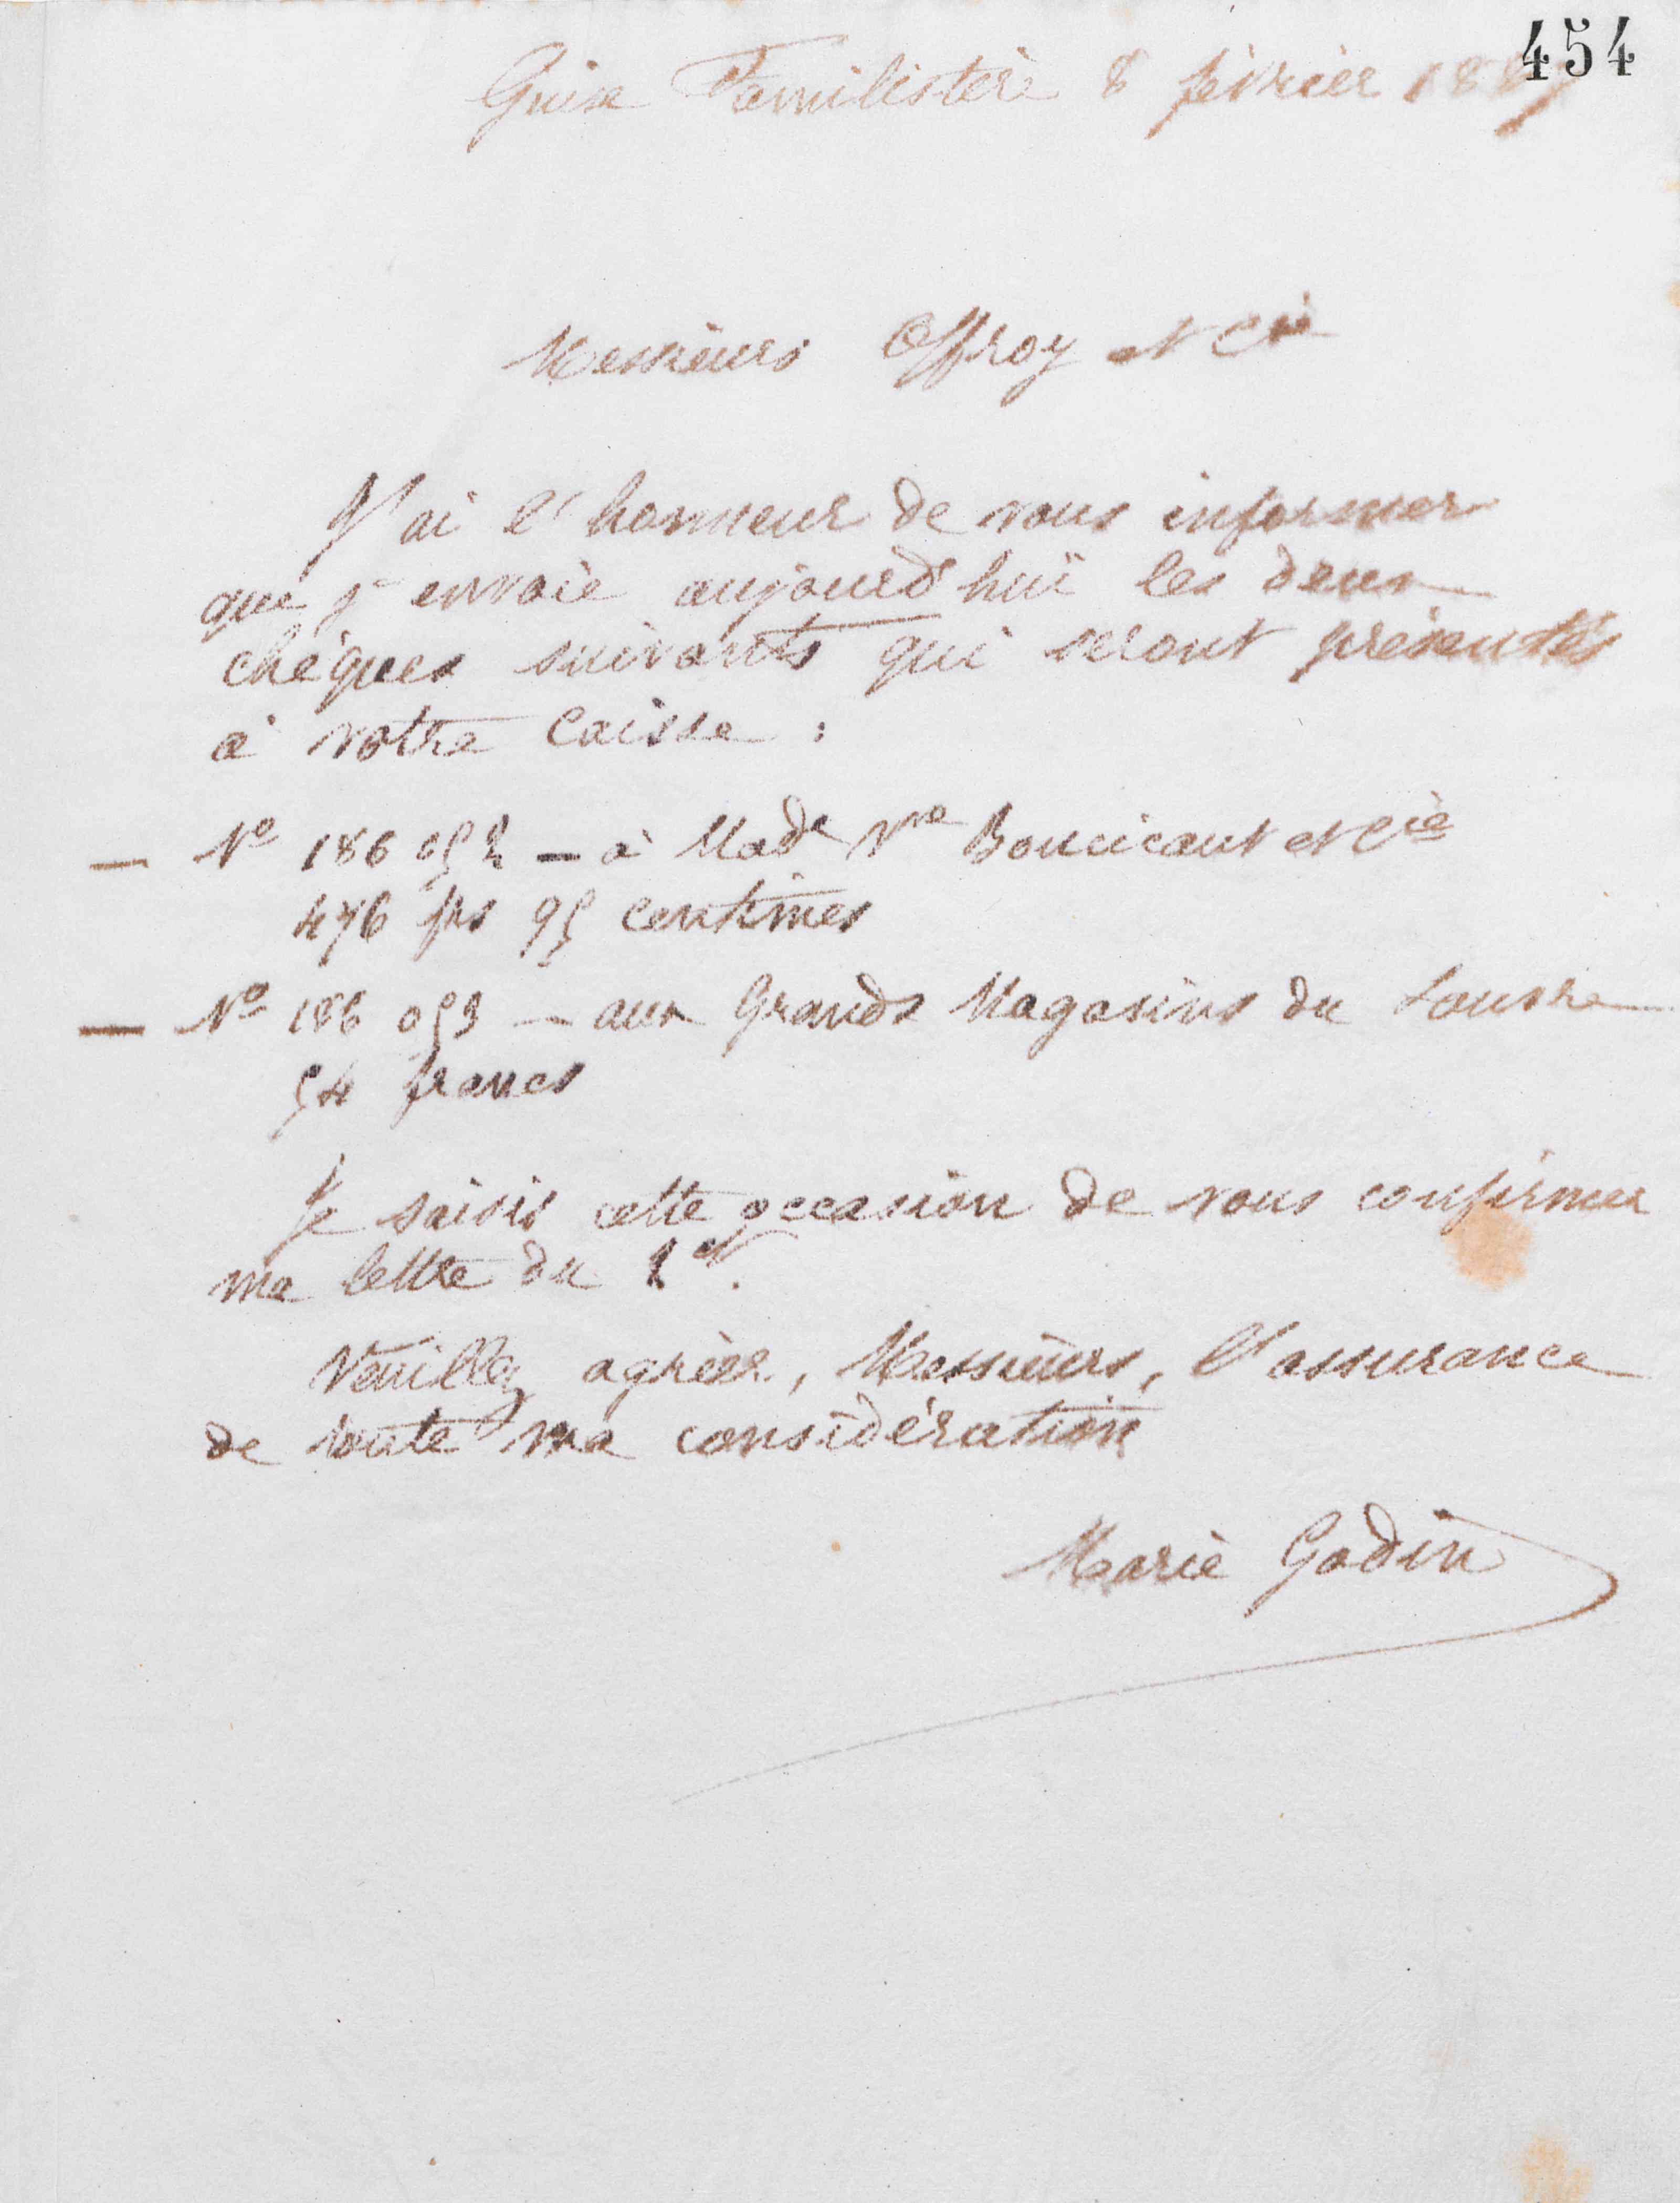 454
Guise Familistère 8 février 188
Messieurs Offroy et Cie
J'ai l'honneur de vous informer
que j'envoie aujourd'hui les deux
chèques suivants qui seront présentés
à votre caisse :
— No 186 052 — à Made Vve Boucicaut et Cie
476 frs 95 centimes
— No 186 053 — aux Grands Magasins du Louvre
54 francs
Je saisis cette occasion de vous confirmer
ma lettre du ct.
Veuillez agréer, Messieurs, l'assurance
de toute ma considération
Marie Godin